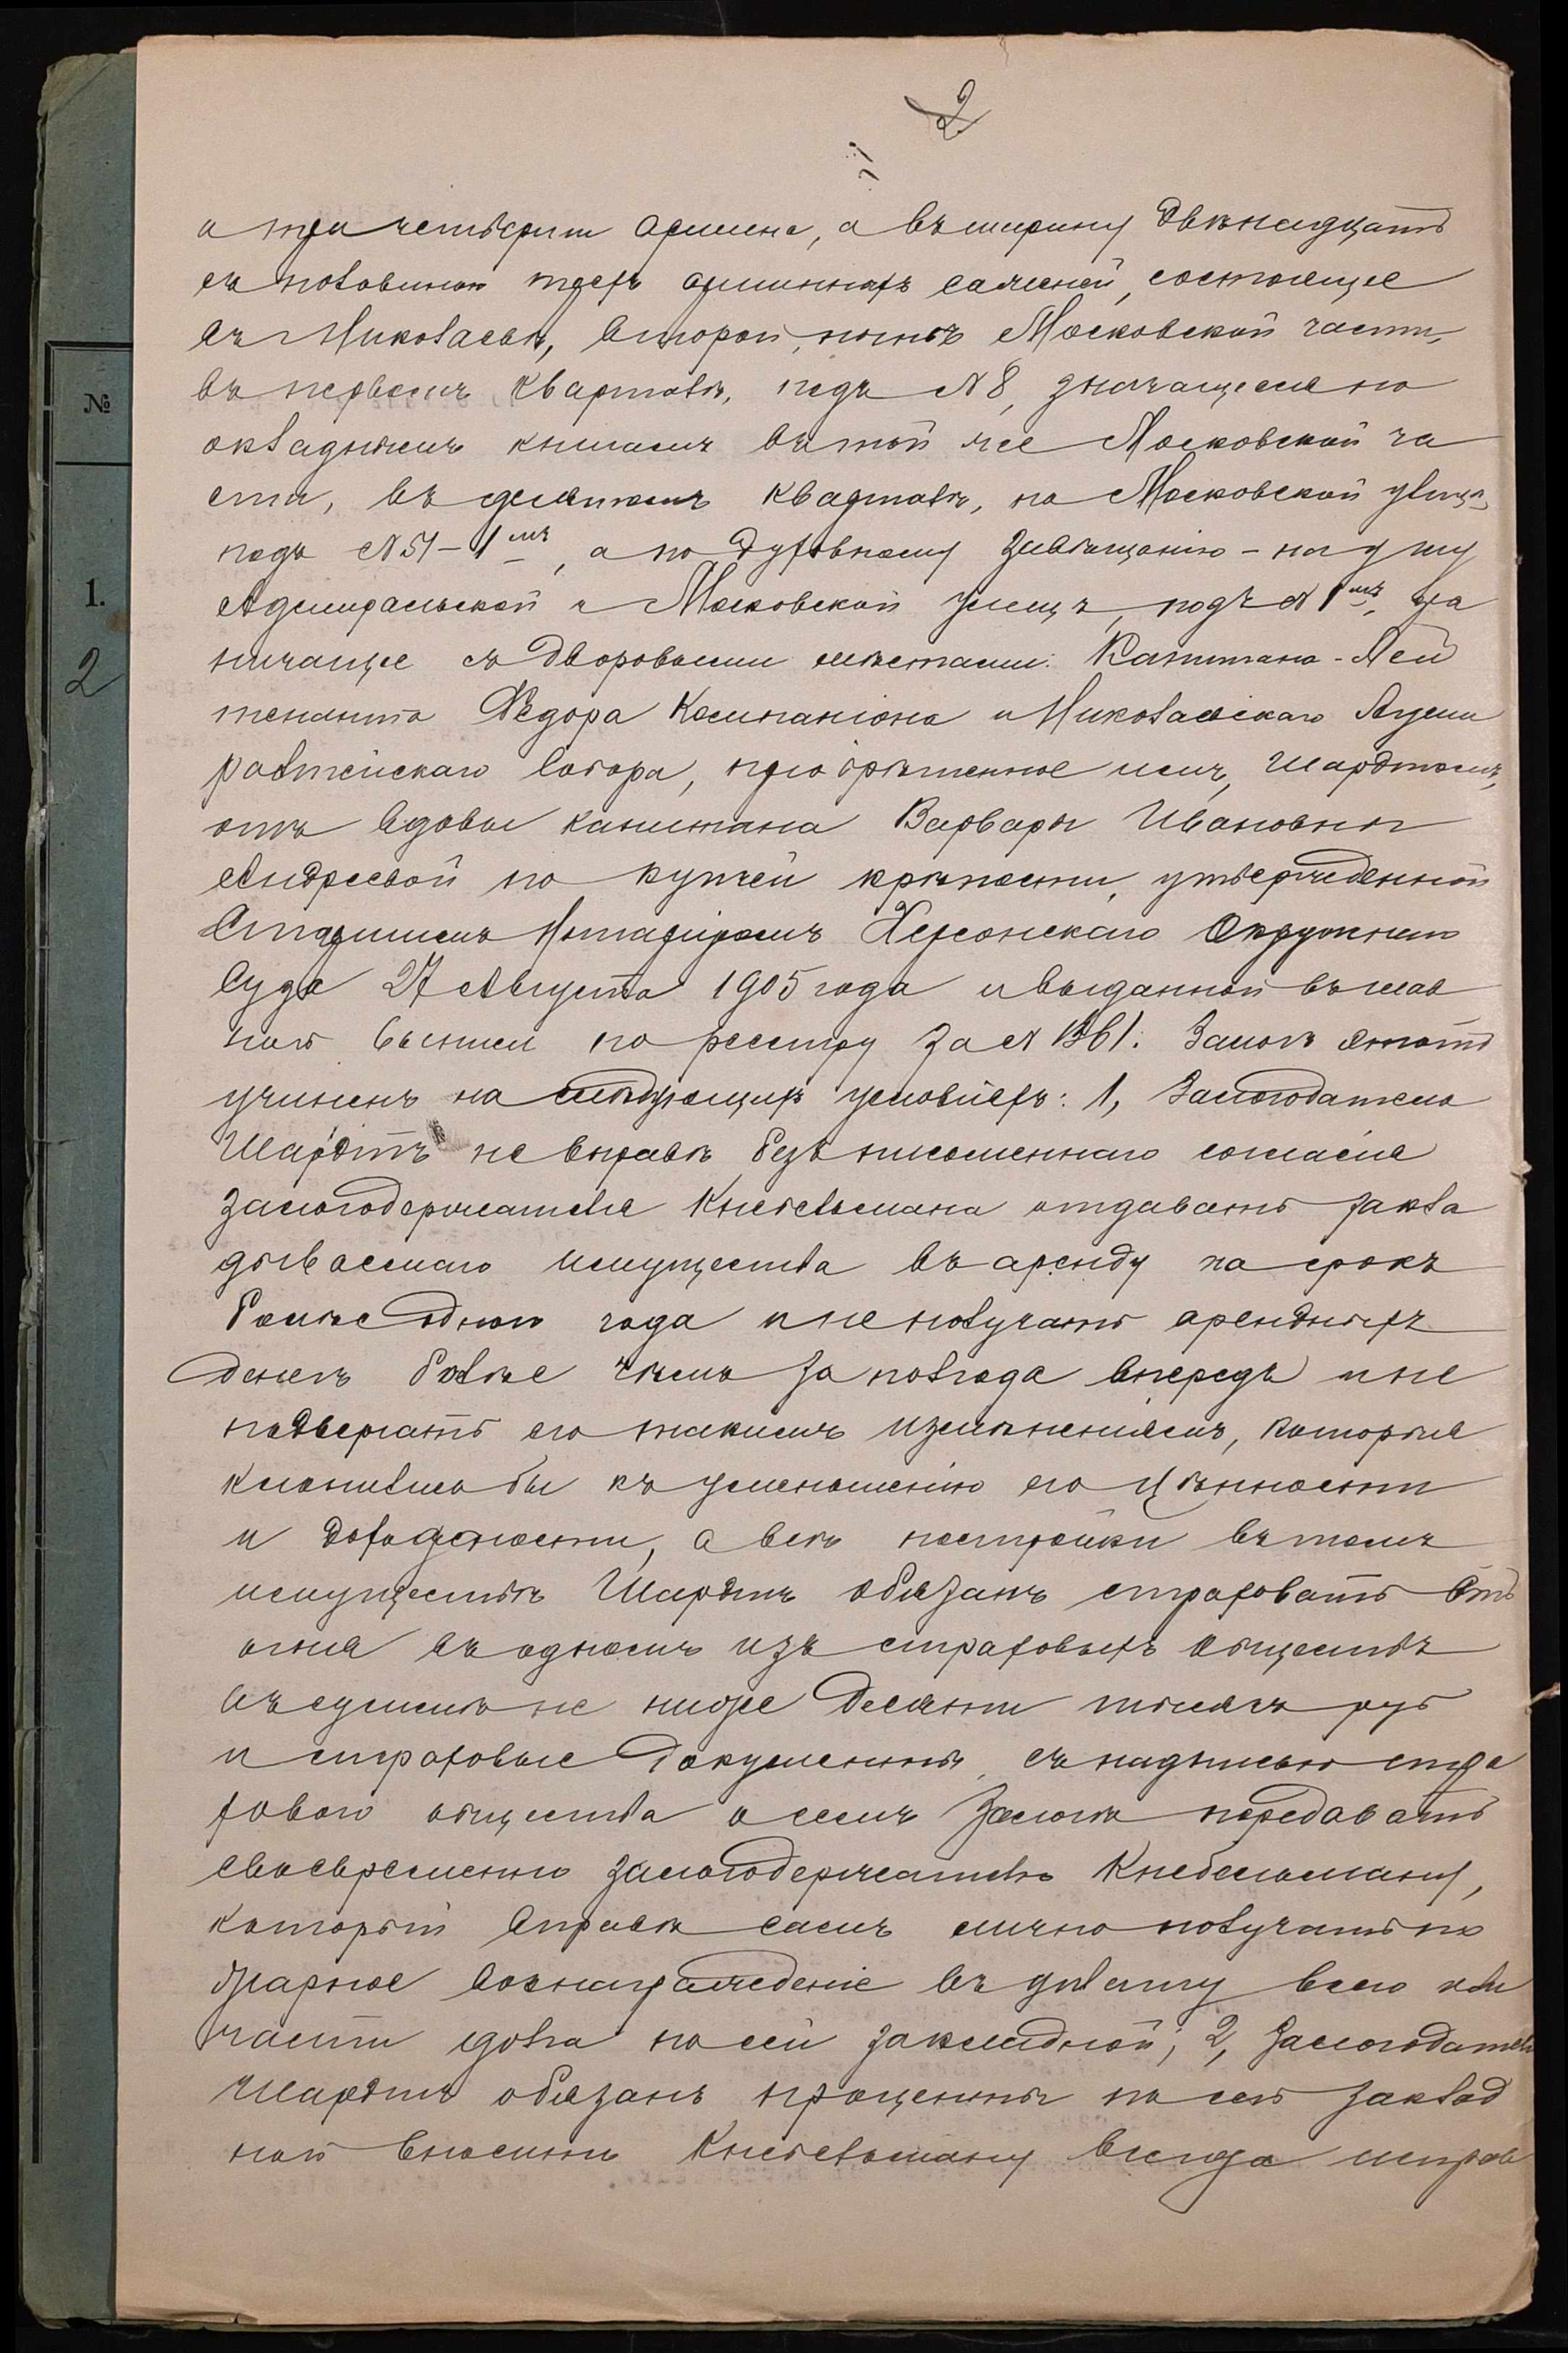 2
и три четверти аршина, а въ ширину двѣнадцать
съ половиною трехъ аршинныхъ саженей, состоящее
въ Николаевѣ, второй, нынѣ Московской части,
въ первомъ кварталѣ, подъ № 8, значащееся по
окладнымъ книгамъ въ той же Московской ча
сти, въ девятомъ кварталѣ, на Московской улицѣ,
подъ № 51-1мъ, а по духовному завѣщанію - на углу
Адмиральской и Московской улицъ, подъ № 1мъ, гра
ничащее съ дворовыми мѣстами: Капитана-Лей
тенанта Федора Компаніона и Николаевскаго Адми
ралтейскаго Собора, пріобрѣтенное имъ, Шардтомъ,
отъ вдовы капитана Варвары Ивановны
Андреевой по купчей крѣпости, утвержденной
Старшимъ Нотаріусомъ Херсонскаго Окружнаго
Суда 27 Августа 1905 года и выданной въ глав
ной выписи по реестру за № 1361. Залогъ этотъ
учиненъ на слѣдующихъ условіяхъ: 1, Залогодатель
Шардтъ не вправѣ безъ письменнаго согласія
залогодержателя Кнебельмана отдавать закла
дываемаго имущества въ аренду на срокъ
болѣе одного года и не получать арендныхъ
денегъ болѣе чѣмъ за полгода впередъ и не
подвергать его такимъ измѣненіямъ, которыя
клонились бы къ уменьшенію его цѣнности
и доходности, а всѣ постройки въ томъ
имуществѣ Шардтъ обязанъ страховать отъ
огня въ одномъ изъ страховыхъ обществъ
въ суммѣ не ниже десяти тысячъ руб
и страховые документы съ надписью стра
хового общества о семъ залогѣ передавать
своевременно залогодержателю Кнебельману,
который вправѣ самъ лично получать по
жарное вознагражденіе въ уплату всего или
части долга по сей закладной; 2, Залогодатель
Шардтъ обязанъ проценты по сей заклад
ной вносить Кнебельману всегда исправ
№
1.
2